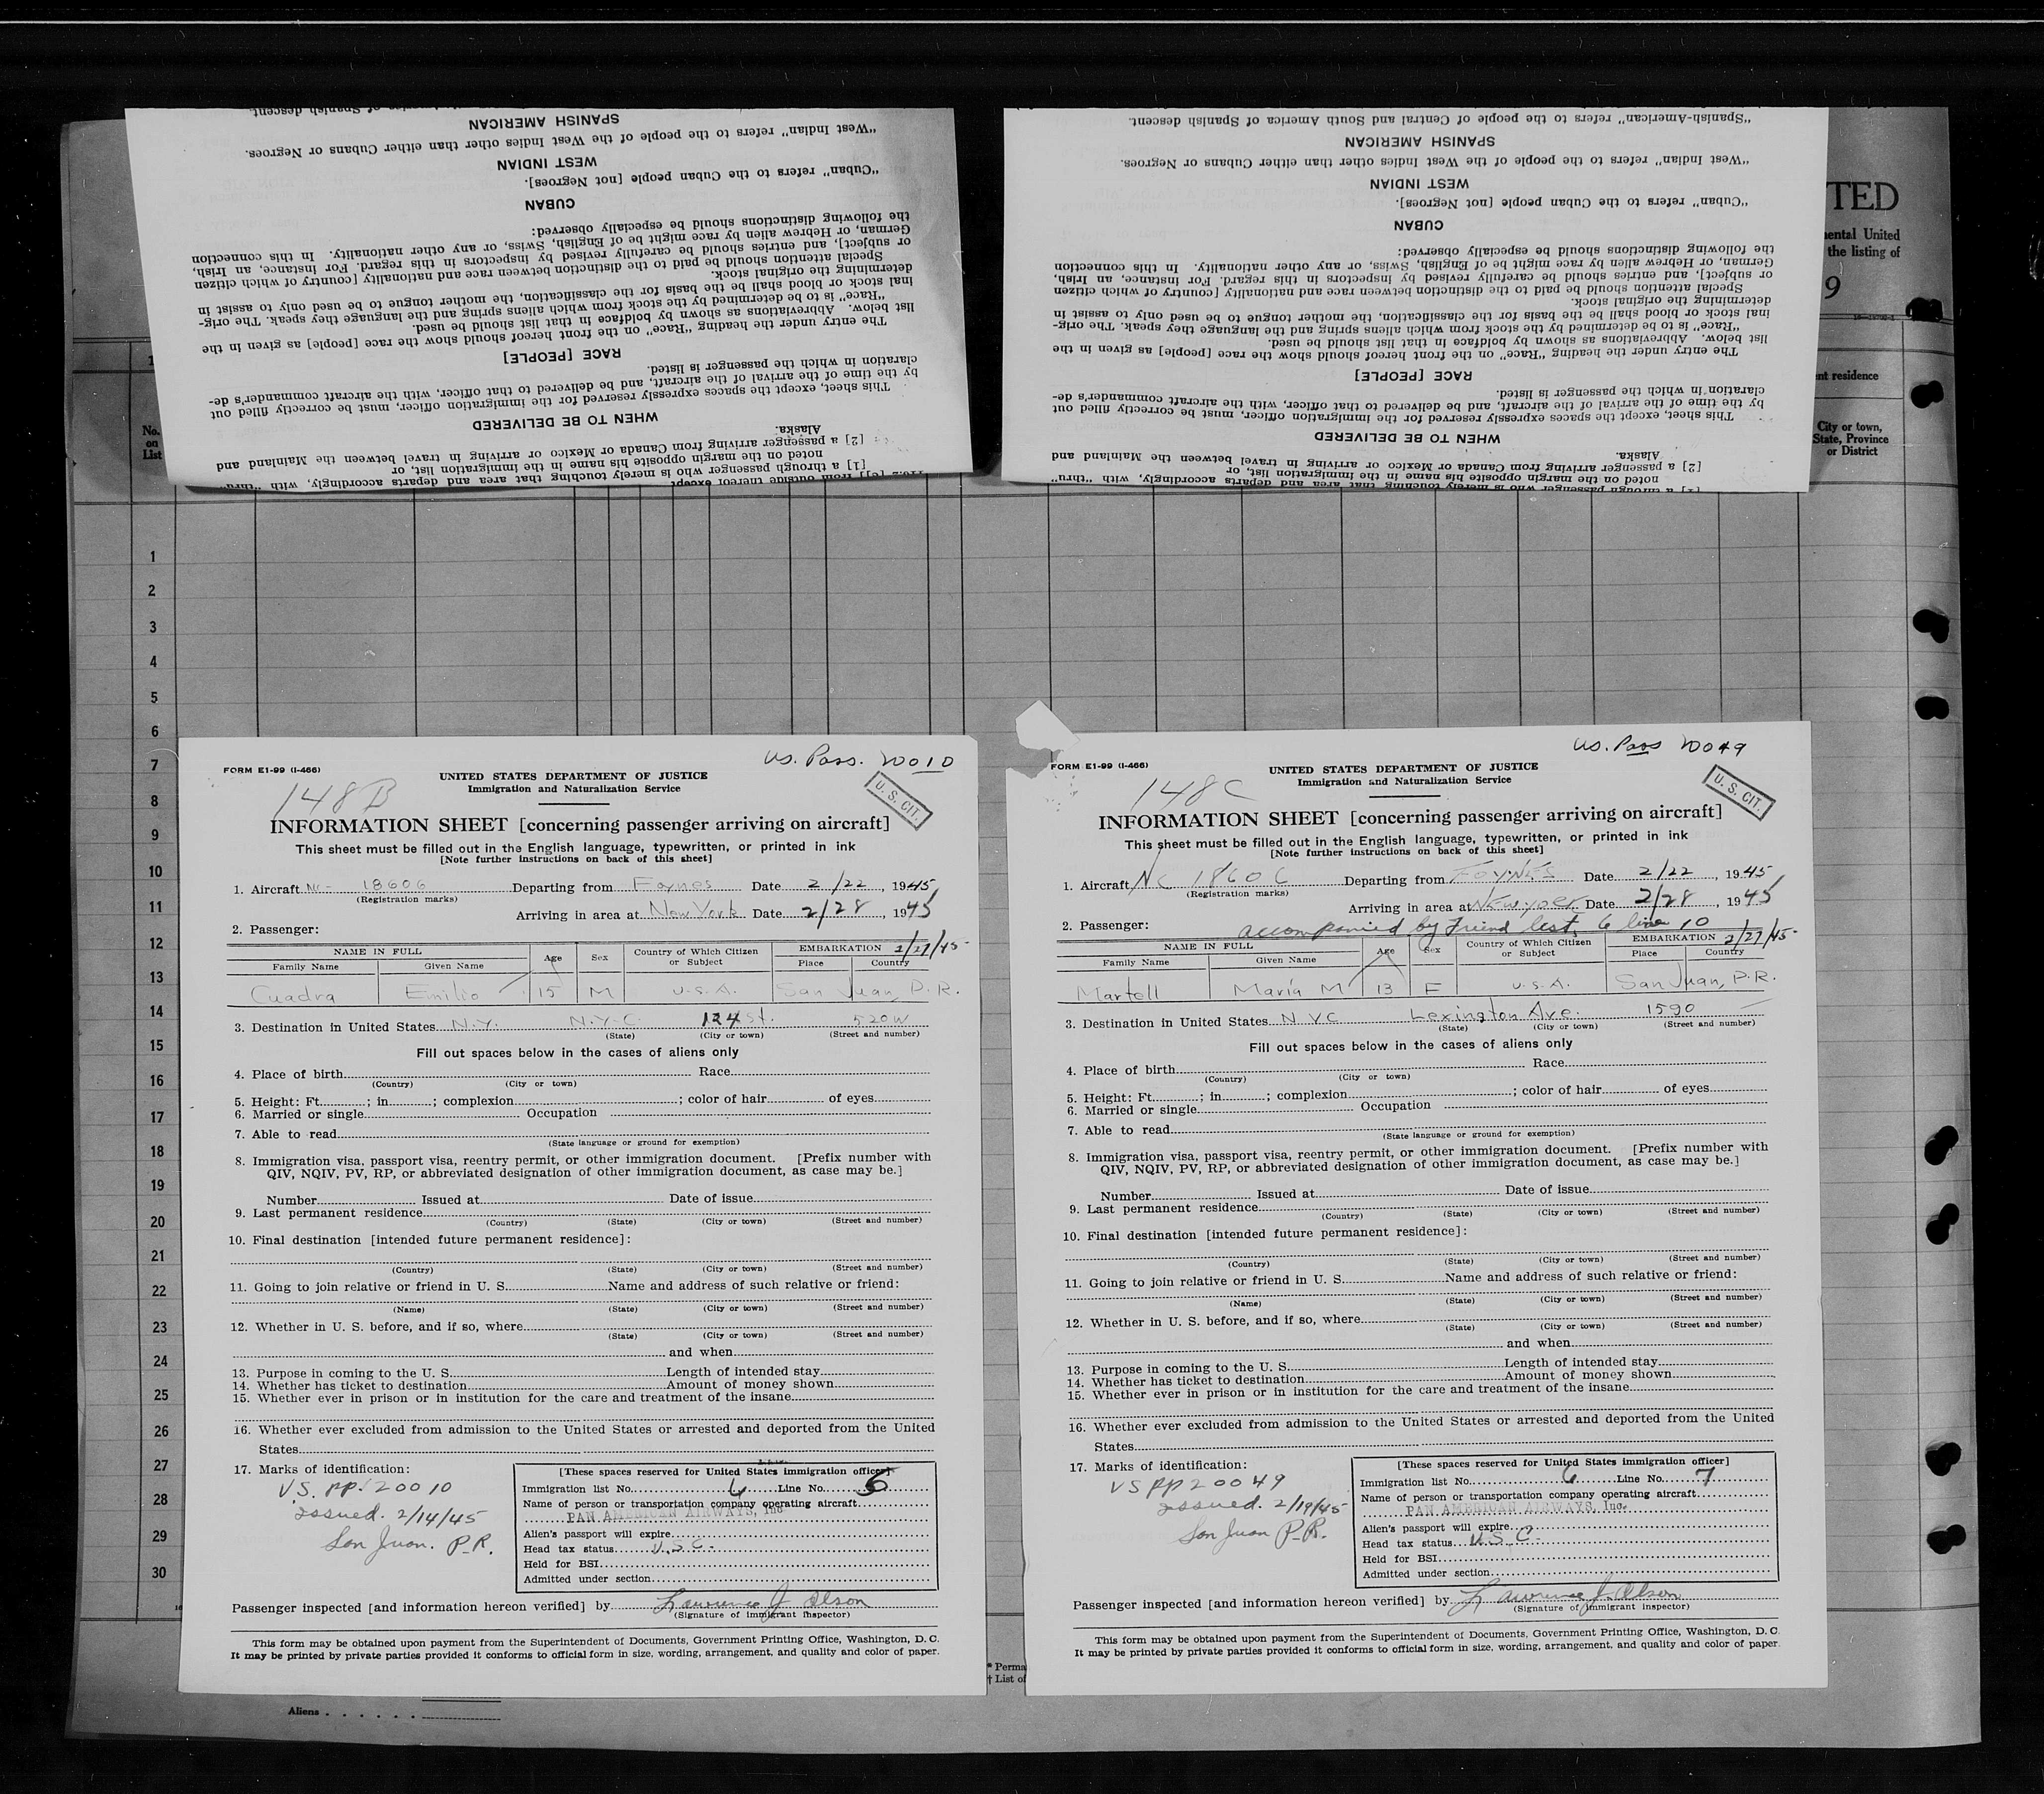 "Spanish-American" refers to the people of Central and South America of Spanish descent.
SPANISH AMERICAN
"West Indian" refers to the people of the West Indies other than either Cubans or Negroes.
WEST INDIAN
"Cuban" refers to the Cuban people [not Negroes].
CUBAN
the following distinctions should be especially observed:
German, or Hebrew alien by race might be of English, Swiss, or any other nationality. In this connection
or subject], and entries should be carefully revised by inspectors in this regard. For instance, an Irish,
Special attention should be paid to the distinction between race and nationality [country of which citizen
determining the original stock.
inal stock or blood shall be the basis for the classification, the mother tongue to be used only to assist in
"Race" is to be determined by the stock from which aliens spring and the language they speak. The orig-
list below. Abbreviations as shown by boldface in that list should be used.
The entry under the heading "Race" on the front hereof should show the race [people] as given in the
RACE [PEOPLE]
claration in which the passenger is listed.
by the time of the arrival of the aircraft, and be delivered to that officer, with the aircraft commander's de-
This sheet, except the spaces expressly reserved for the immigration officer, must be correctly filled out
WHEN TO BE DELIVERED
Alaska.
[2] a passenger arriving from Canada or Mexico or arriving in travel between the Mainland and
noted on the margin opposite his name in the immigration list, or
[1] a through passenger who is merely touching that area and departs accordingly, with "thru"
TED
ental United
the listing of
9
nt residence
City or town,
State, Province
or District
No.
on
List
1
2
3
4
5
6
7
8
9
10
11
12
13
14
15
16
17
18
19
20
21
22
23
24
25
26
27
28
29
30
US. Pass. 20010
FORM E1-99 (I-466)
148B
UNITED STATES DEPARTMENT OF JUSTICE
Immigration and Naturalization Service
U. S. CIT.
INFORMATION SHEET [concerning passenger arriving on aircraft]
This sheet must be filled out in the English language, typewritten, or printed in ink
[Note further instructions on back of this sheet]
1. Aircraft NC- 18606 Departing from Foynes Date 2/22, 1945
(Registration marks)
Arriving in area at New York Date 2/28, 1945
2. Passenger:
NAME IN FULL Age Sex Country of Which Citizen or Subject EMBARKATION 2/27/45-
Family Name Given Name Place Country
Cuadra Emilio 15 M U.S.A. San Juan, P.R.
3. Destination in United States N.Y. N.Y.C. 124 St. 520W
(State) (City or town) (Street and number)
Fill out spaces below in the cases of aliens only
4. Place of birth Race
(Country) (City or town)
5. Height: Ft. ; in ; complexion ; color of hair of eyes
6. Married or single Occupation
7. Able to read
(State language or ground for exemption)
8. Immigration visa, passport visa, reentry permit, or other immigration document. [Prefix number with
QIV, NQIV, PV, RP, or abbreviated designation of other immigration document, as case may be.]
Number Issued at Date of issue
9. Last permanent residence
(Country) (State) (City or town) (Street and number)
10. Final destination [intended future permanent residence]:
(Country) (State) (City or town) (Street and number)
11. Going to join relative or friend in U. S. Name and address of such relative or friend:
(Name) (State) (City or town) (Street and number)
12. Whether in U. S. before, and if so, where
(State) (City or town) (Street and number)
and when
13. Purpose in coming to the U. S. Length of intended stay
14. Whether has ticket to destination Amount of money shown
15. Whether ever in prison or in institution for the care and treatment of the insane
16. Whether ever excluded from admission to the United States or arrested and deported from the United
States
17. Marks of identification:
VS. PP. 20010
issued. 2/14/45
San Juan. P.R.
[These spaces reserved for United States immigration officer]
Immigration list No. 6 Line No. 6
Name of person or transportation company operating aircraft
PAN AMERICAN AIRWAYS, Inc
Alien's passport will expire
Head tax status U.S.C.
Held for BSI
Admitted under section
Passenger inspected [and information hereon verified] by Lawrence J Olson
(Signature of immigrant inspector)
This form may be obtained upon payment from the Superintendent of Documents, Government Printing Office, Washington, D. C.
It may be printed by private parties provided it conforms to official form in size, wording, arrangement, and quality and color of paper.
Aliens
* Perma
† List of
US. Pass 20049
FORM E1-99 (I-466)
148C
UNITED STATES DEPARTMENT OF JUSTICE
Immigration and Naturalization Service
U. S. CIT.
INFORMATION SHEET [concerning passenger arriving on aircraft]
This sheet must be filled out in the English language, typewritten, or printed in ink
[Note further instructions on back of this sheet]
1. Aircraft NC 18606 Departing from FOYNES Date 2/22, 1945
(Registration marks)
Arriving in area at New york Date 2/28, 1945
2. Passenger: accompanied by friend list 6 line 10
NAME IN FULL Age Sex Country of Which Citizen or Subject EMBARKATION 2/27/45-
Family Name Given Name Place Country
Martell María M 13 F U.S.A. San Juan, P.R.
3. Destination in United States N.Y.C Lexington Ave. 1590
(State) (City or town) (Street and number)
Fill out spaces below in the cases of aliens only
4. Place of birth Race
(Country) (City or town)
5. Height: Ft. ; in ; complexion ; color of hair of eyes
6. Married or single Occupation
7. Able to read
(State language or ground for exemption)
8. Immigration visa, passport visa, reentry permit, or other immigration document. [Prefix number with
QIV, NQIV, PV, RP, or abbreviated designation of other immigration document, as case may be.]
Number Issued at Date of issue
9. Last permanent residence
(Country) (State) (City or town) (Street and number)
10. Final destination [intended future permanent residence]:
(Country) (State) (City or town) (Street and number)
11. Going to join relative or friend in U. S. Name and address of such relative or friend:
(Name) (State) (City or town) (Street and number)
12. Whether in U. S. before, and if so, where
(State) (City or town) (Street and number)
and when
13. Purpose in coming to the U. S. Length of intended stay
14. Whether has ticket to destination Amount of money shown
15. Whether ever in prison or in institution for the care and treatment of the insane
16. Whether ever excluded from admission to the United States or arrested and deported from the United
States
17. Marks of identification:
VS PP 20049
issued. 2/19/45
San Juan P.R.
[These spaces reserved for United States immigration officer]
Immigration list No. 6 Line No. 7
Name of person or transportation company operating aircraft
PAN AMERICAN AIRWAYS, Inc.
Alien's passport will expire
Head tax status U.S.C.
Held for BSI
Admitted under section
Passenger inspected [and information hereon verified] by Lawrence J. Olson
(Signature of immigrant inspector)
This form may be obtained upon payment from the Superintendent of Documents, Government Printing Office, Washington, D. C.
It may be printed by private parties provided it conforms to official form in size, wording, arrangement, and quality and color of paper.